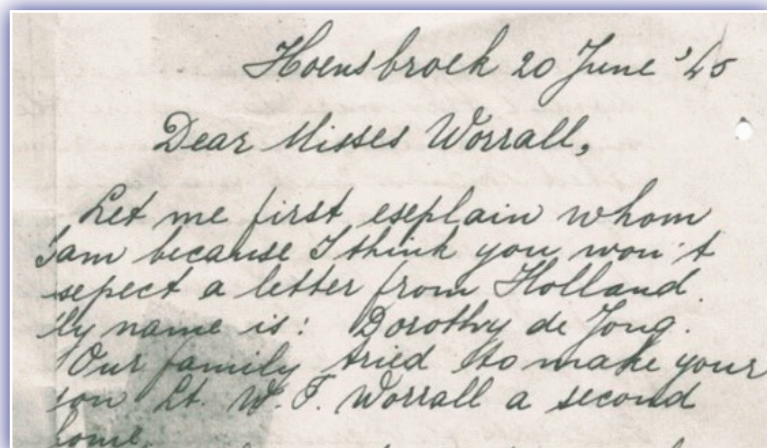 Hoensbroek 20 June '45
Dear Misses Worrall,
Let me first eseplain whom
I am because I think you won't
esepect a letter from Holland.
My name is: Dorothy de Jong.
Our family tried to make your
son Lt. W. F. Worrall a second
home.